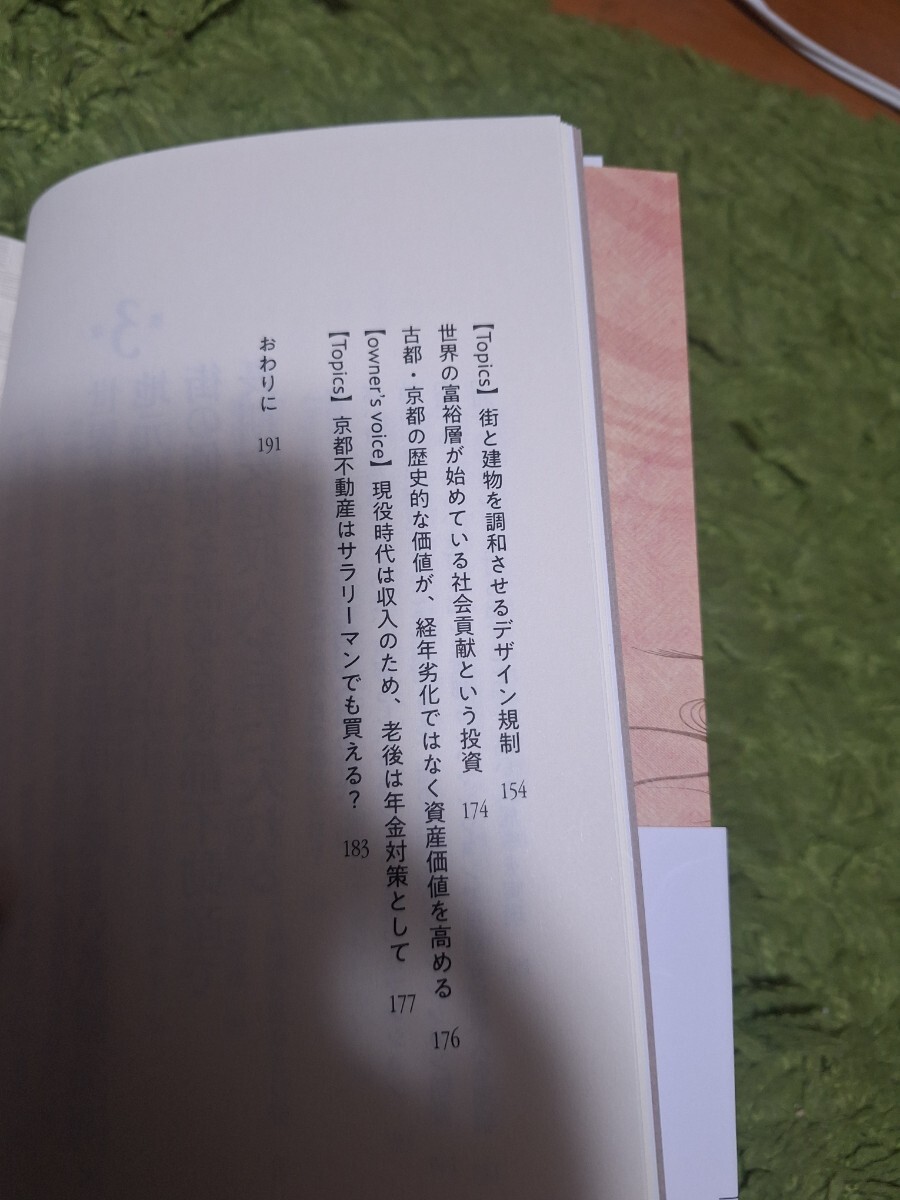 【Topics】 街と建物を調和させるデザイン規制 154
世界の富裕層が始めている社会貢献という投資 174
古都・京都の歴史的な価値が、経年劣化ではなく資産価値を高める 176
【owner's voice】現役時代は収入のため、老後は年金対策として 177
【Topics】 京都不動産はサラリーマンでも買える? 183
おわりに 191